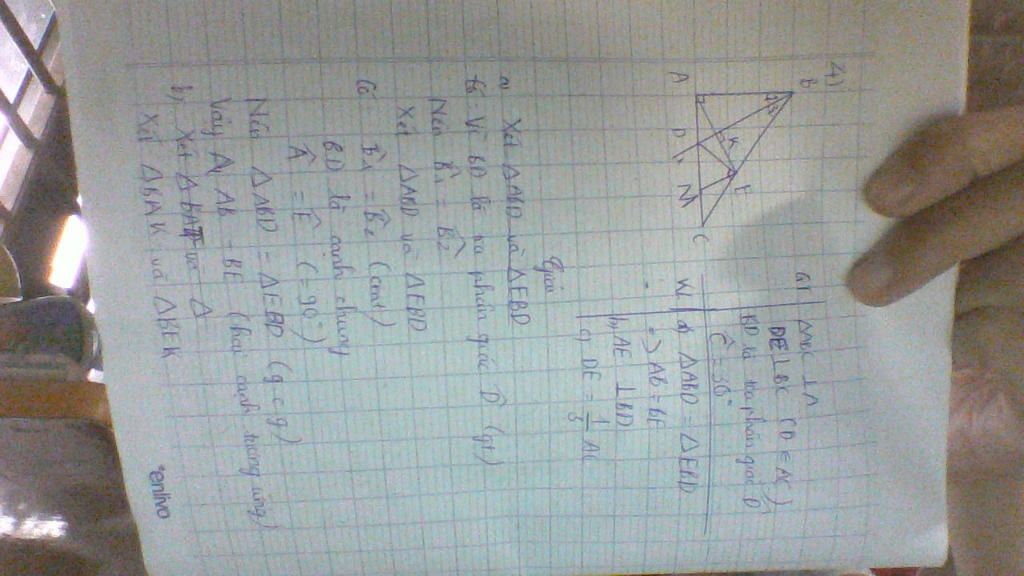 4)
B
A
K
E
D
M
C
GT
ΔABC ⊥ A
DE ⊥ BC (D ∈ AC)
BD là tia phân giác B̂
Ĉ = 30°
KL
a) ΔABD = ΔEBD
=> AB = BE
b) AE ⊥ BD
c) DE = 1/3 AC
Giải
a) Xét ΔABD và ΔEBD
Có: Vì BD là tia phân giác B̂ (gt)
Nên B̂1 = B̂2
Xét ΔABD và ΔEBD
Có B̂1 = B̂2 (cmt)
BD là cạnh chung
Â = Ê (= 90°)
Nên ΔABD = ΔEBD (g.c.g)
Vậy AB = BE (hai cạnh tương ứng)
b) Xét Δ và Δ
Xét ΔBAK và ΔBEK
enlivo